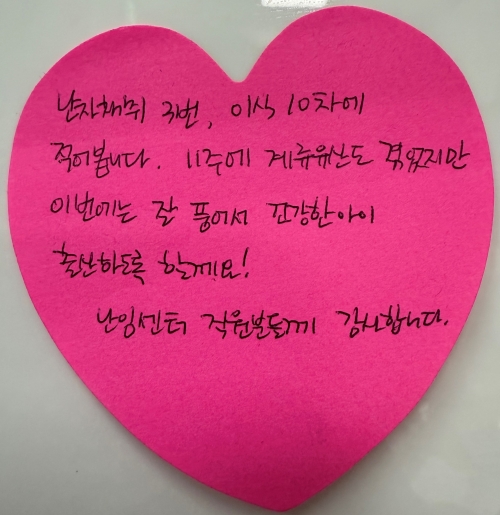 난자채취 3번, 이식 10차에
적어봅니다. 11주에 계류유산도 겪었지만
이번에는 잘 품어서 건강한아이
출산하도록 할게요!
난임센터 직원분들께 감사합니다.